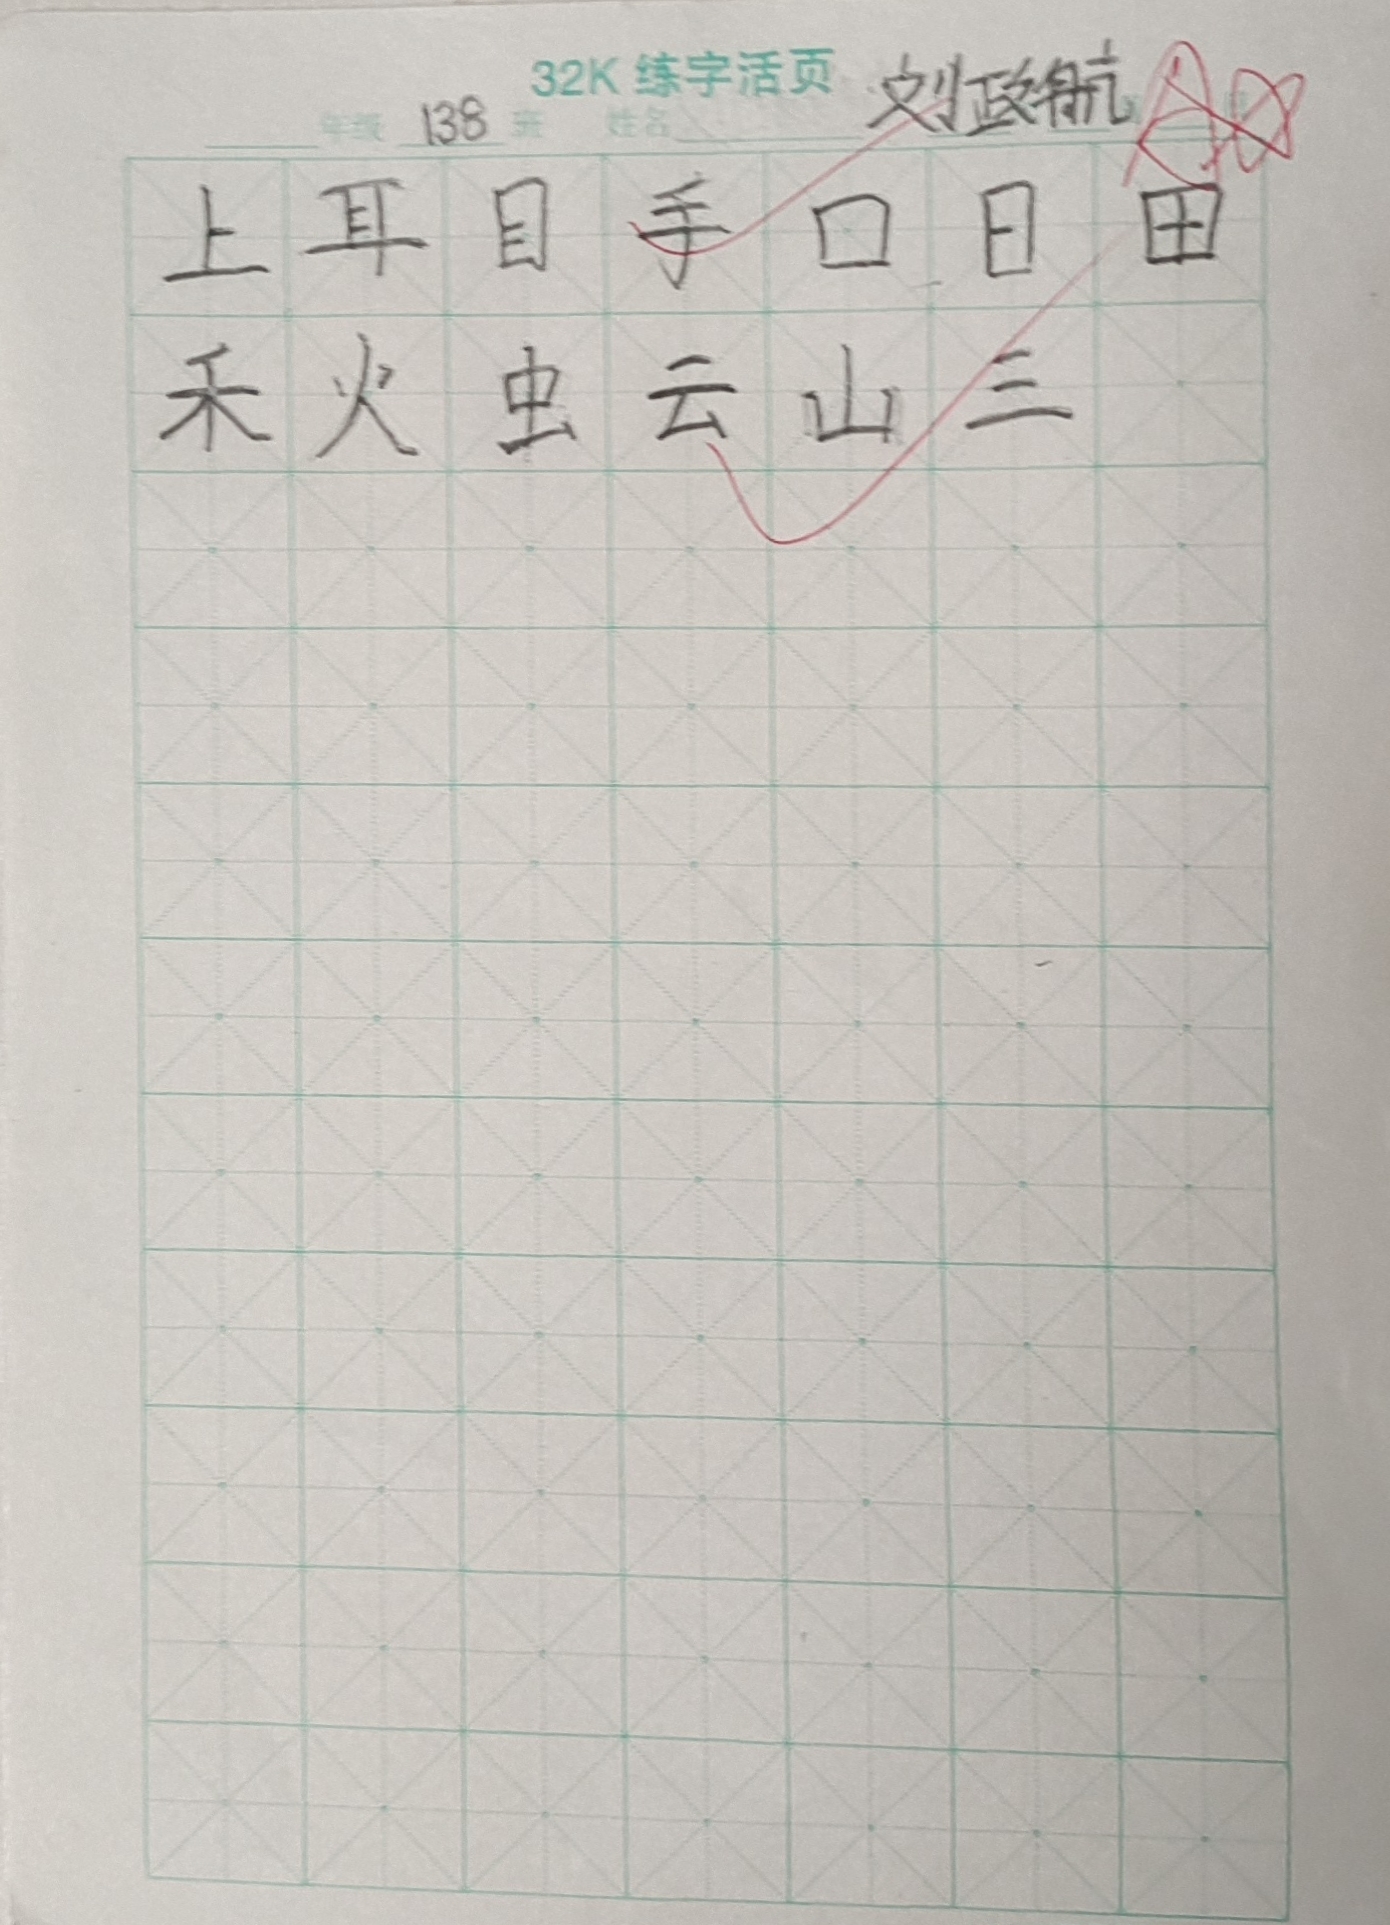 32K 练字活页
年级 138 班 姓名 刘政航
上耳目手口日田
禾火虫云山三